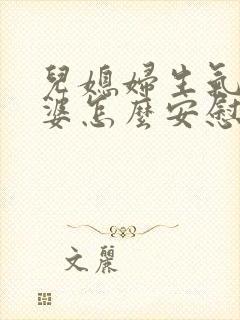 兒媳婦生氣
婆怎麼安慰
文麗